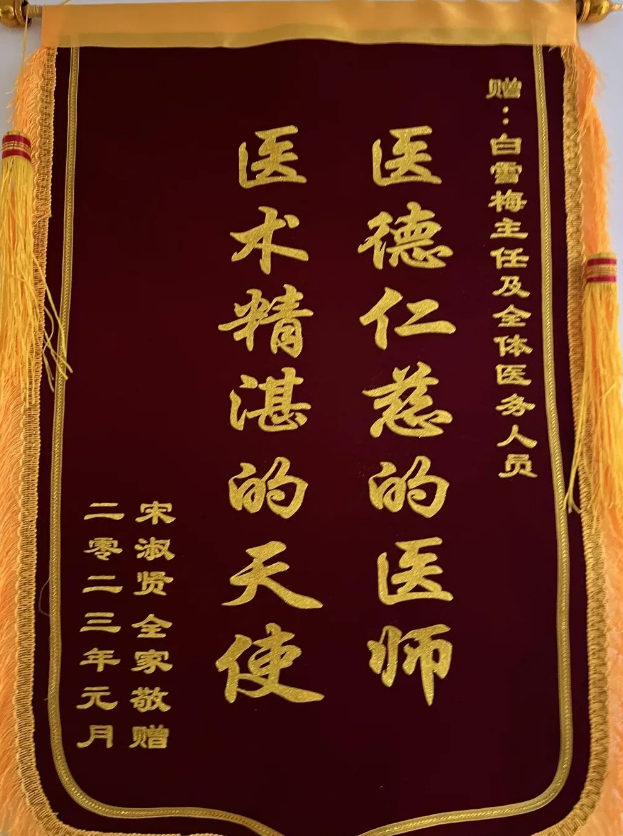 赠：白雪梅主任及全体医务人员
医德仁慈的医师
医术精湛的天使
宋淑贤 全家敬赠
二零二三年元月